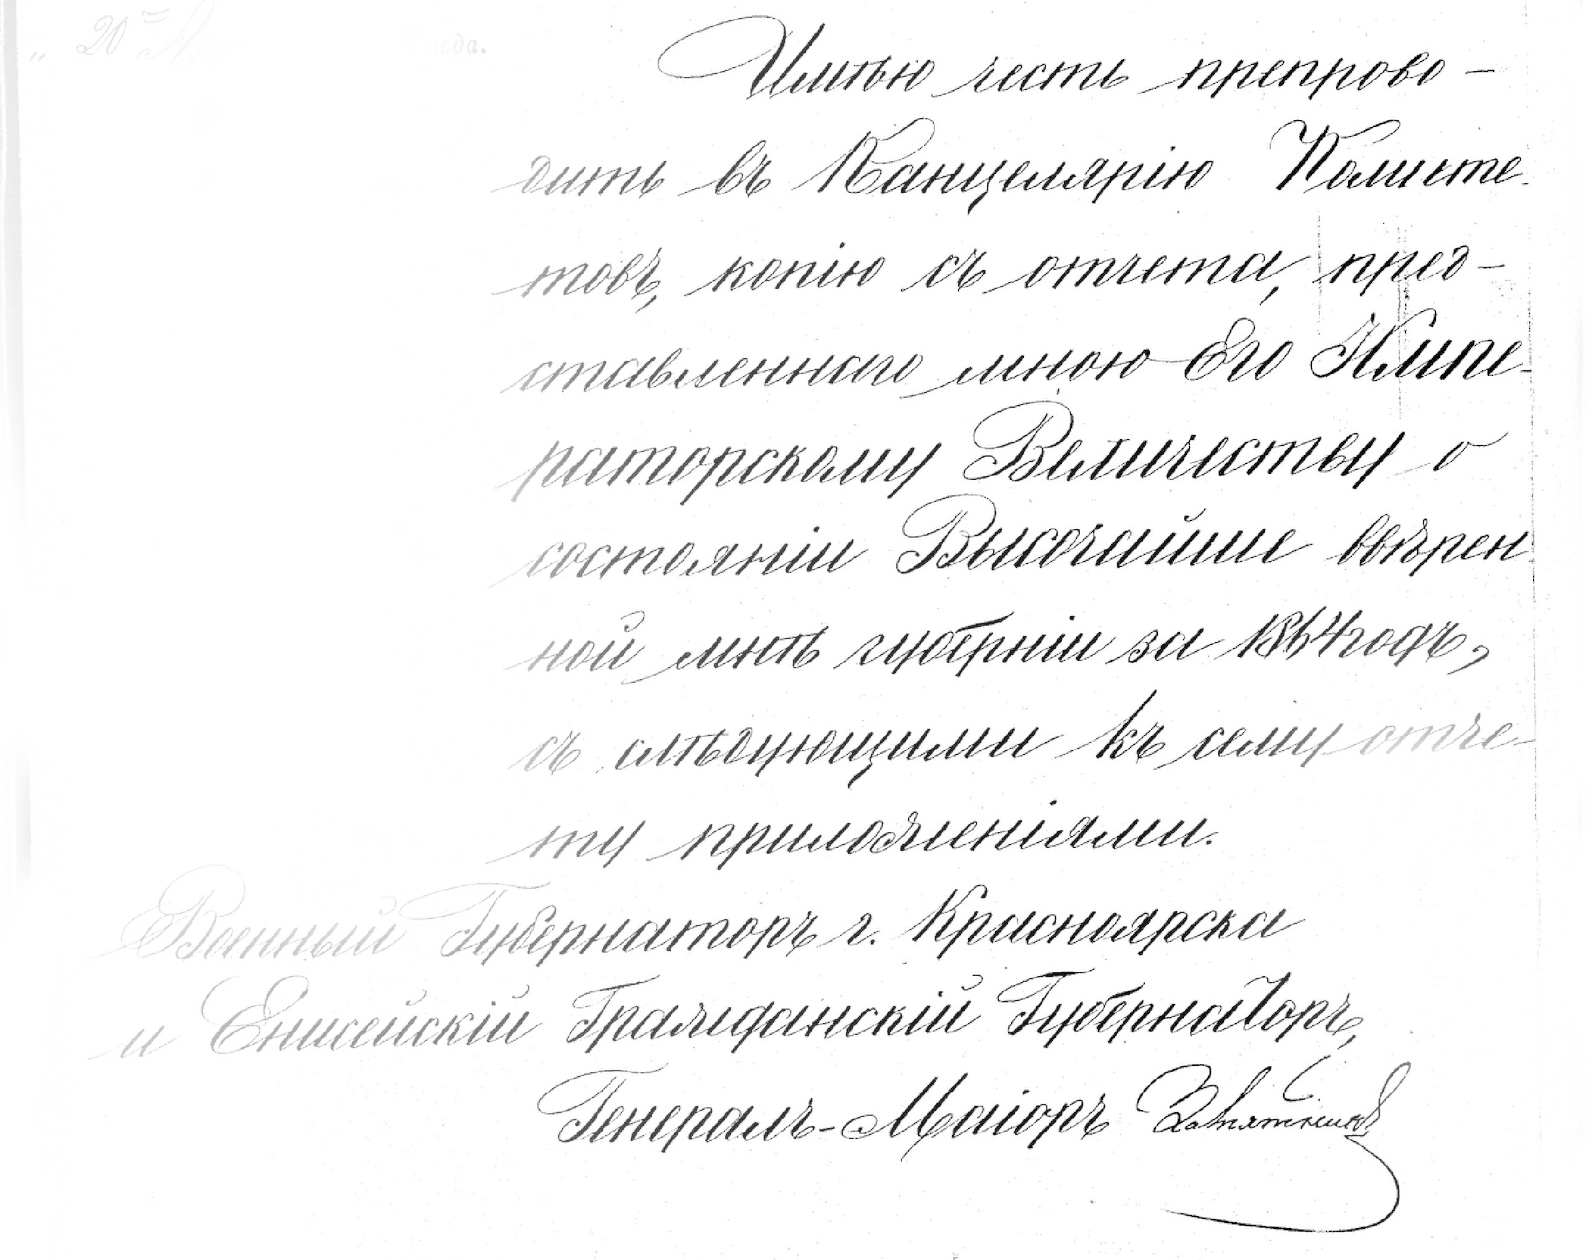 „ 20
Имѣю честь препрово-
дить въ Канцелярію Комите-
товъ, копію съ отчета, пред-
ставленнаго мною Его Импе-
раторскому Величеству о
состояніи Высочайше ввѣрен-
ной мнѣ губерніи за 1864 годъ,
съ слѣдующими къ сему отче-
ту приложеніями.
Военный Губернаторъ г. Красноярска
и Енисейскій Гражданскій Губернаторъ,
Генералъ-Маіоръ